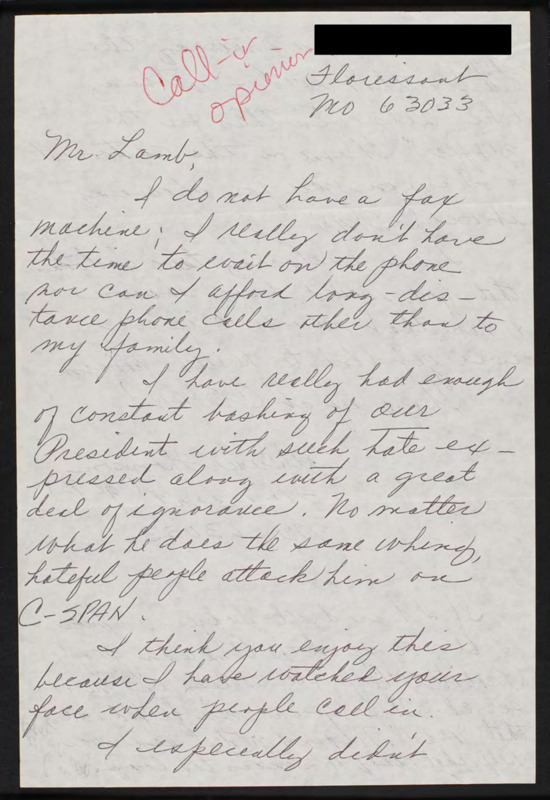 Call-in
opinion
Florissant
MO 63033
Mr. Lamb,
I do not have a fax
machine; I really don't have
the time to wait on the phone
nor can I afford long-dis-
tance phone calls other than to
my family.
I have really had enough
of constant bashing of our
President with such hate ex-
pressed along with a great
deal of ignorance. No matter
what he does the same whiny,
hateful people attack him on
C-SPAN.
I think you enjoy this
because I have watched your
face when people call in.
I especially didn't